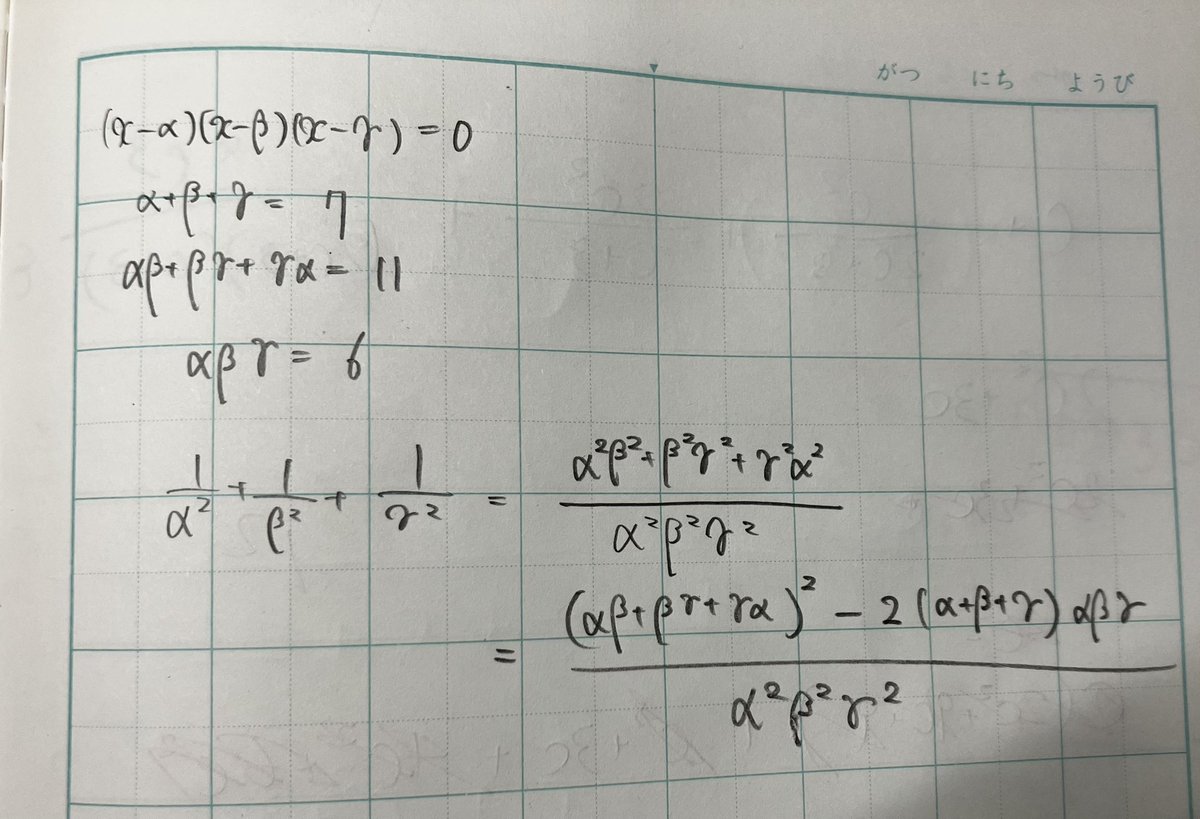 がつ にち ようび
(x-α)(x-β)(x-γ) = 0
α+β+γ = 7
αβ+βγ+γα = 11
αβγ = 6
1/α² + 1/β² + 1/γ² = (α²β²+β²γ²+γ²α²)/(α²β²γ²)
= ((αβ+βγ+γα)² - 2(α+β+γ)αβγ)/(α²β²γ²)